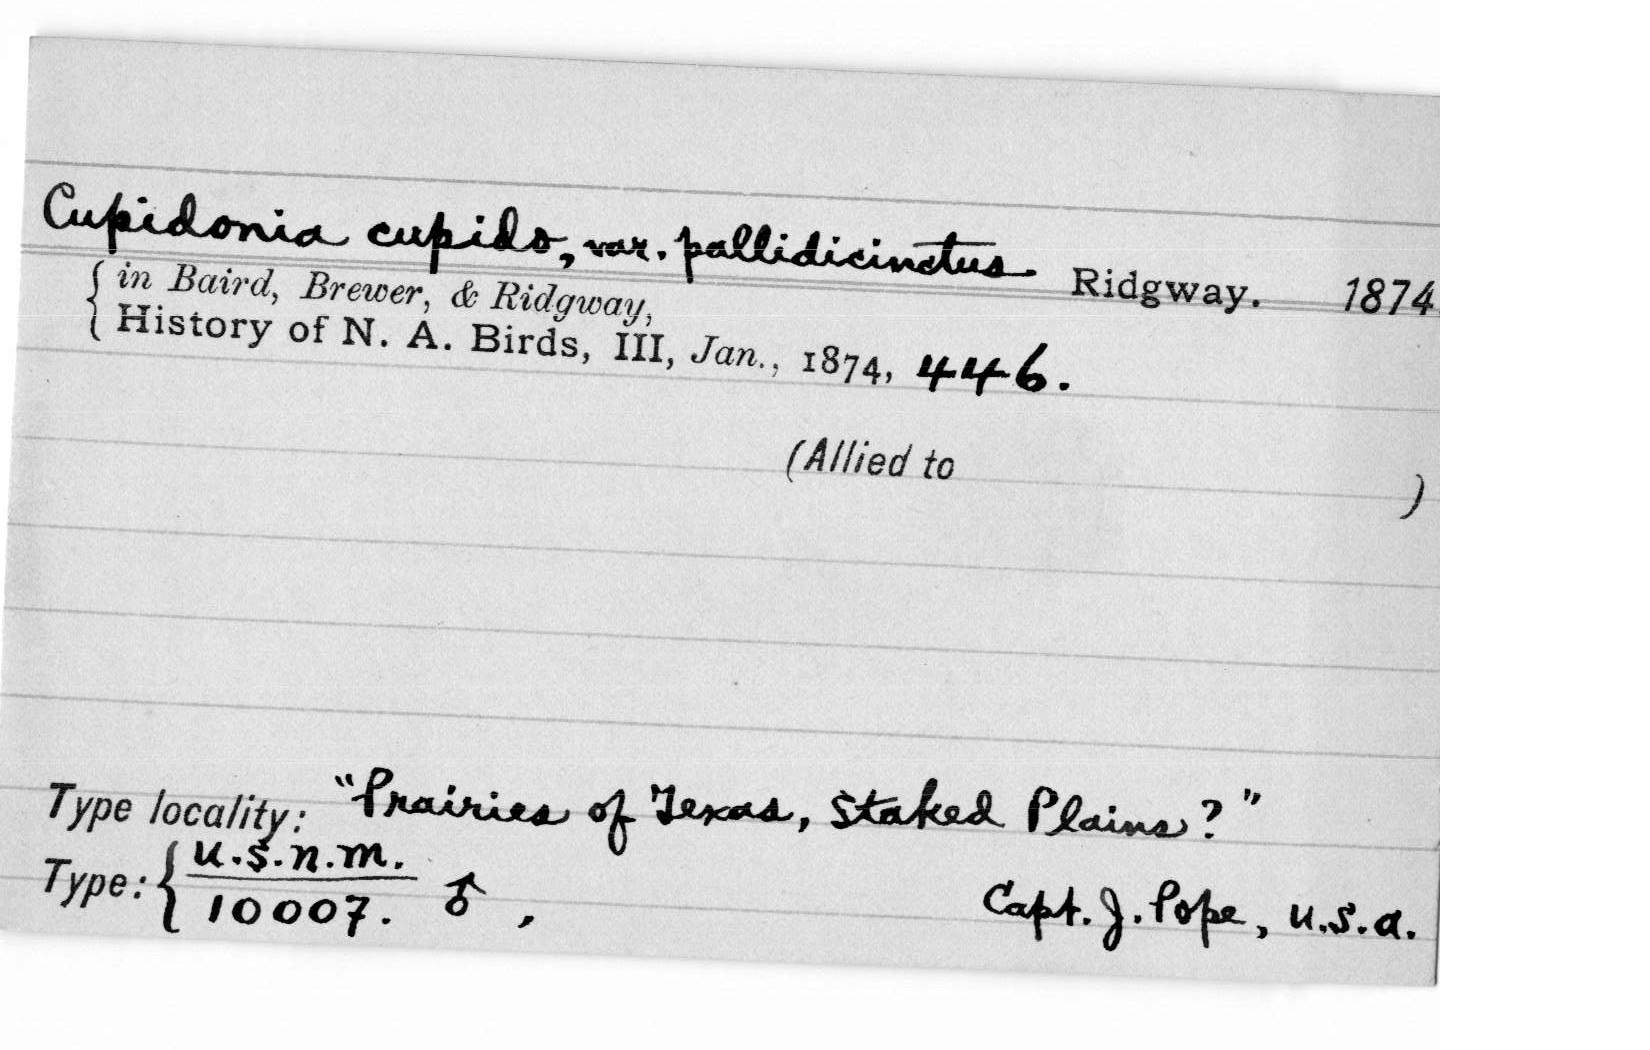 Cupidonia cupido, var. pallidicinctus Ridgway. 1874
{ in Baird, Brewer, & Ridgway,
History of N. A. Birds, III, Jan., 1874, 446.
(Allied to )
Type locality: "Prairies of Texas, Staked Plains?"
Type: { U.S.N.M.
10007. ♂, Capt. J. Pope, U.S.A.